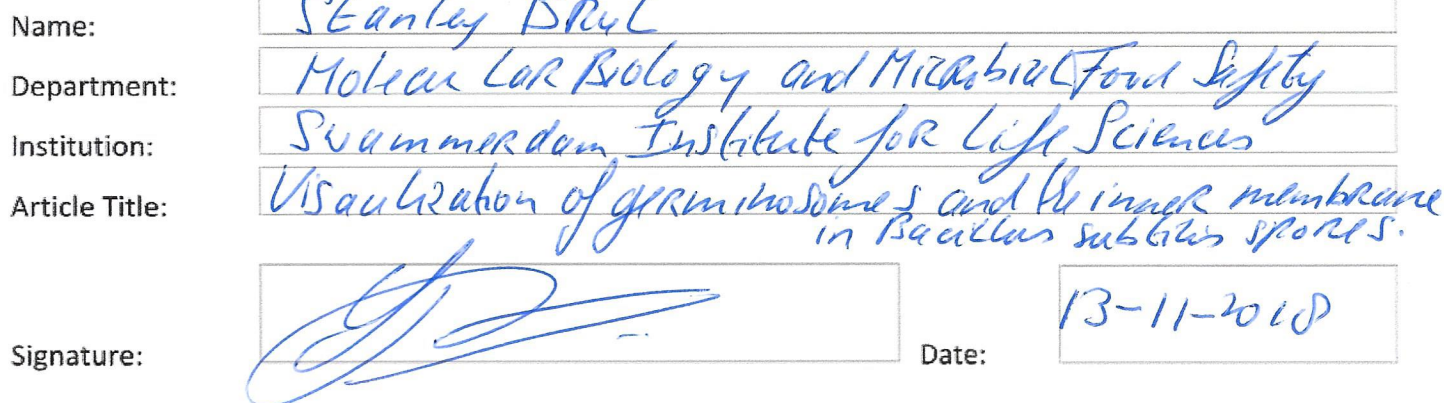 Name: Stanley BRUL
Department: Molecular Biology and Microbial Food Safety
Institution: Swammerdam Institute for Life Sciences
Article Title: Visaulization of germinosomes and the inner membrane
in Bacillus subtilis spores.
Signature: Date: 13-11-2018